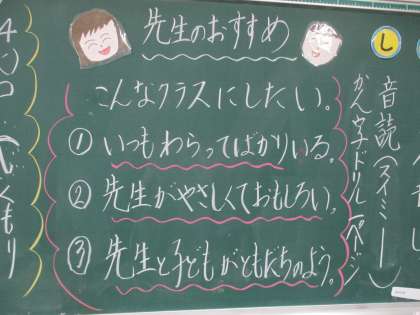 先生のおすすめ
こんなクラスにしたい。
① いつもわらってばかりいる。
② 先生がやさしくておもしろい。
③ 先生と子どもがともだちのよう。
し
音読(スイミー)
かん字ドリル
くもり